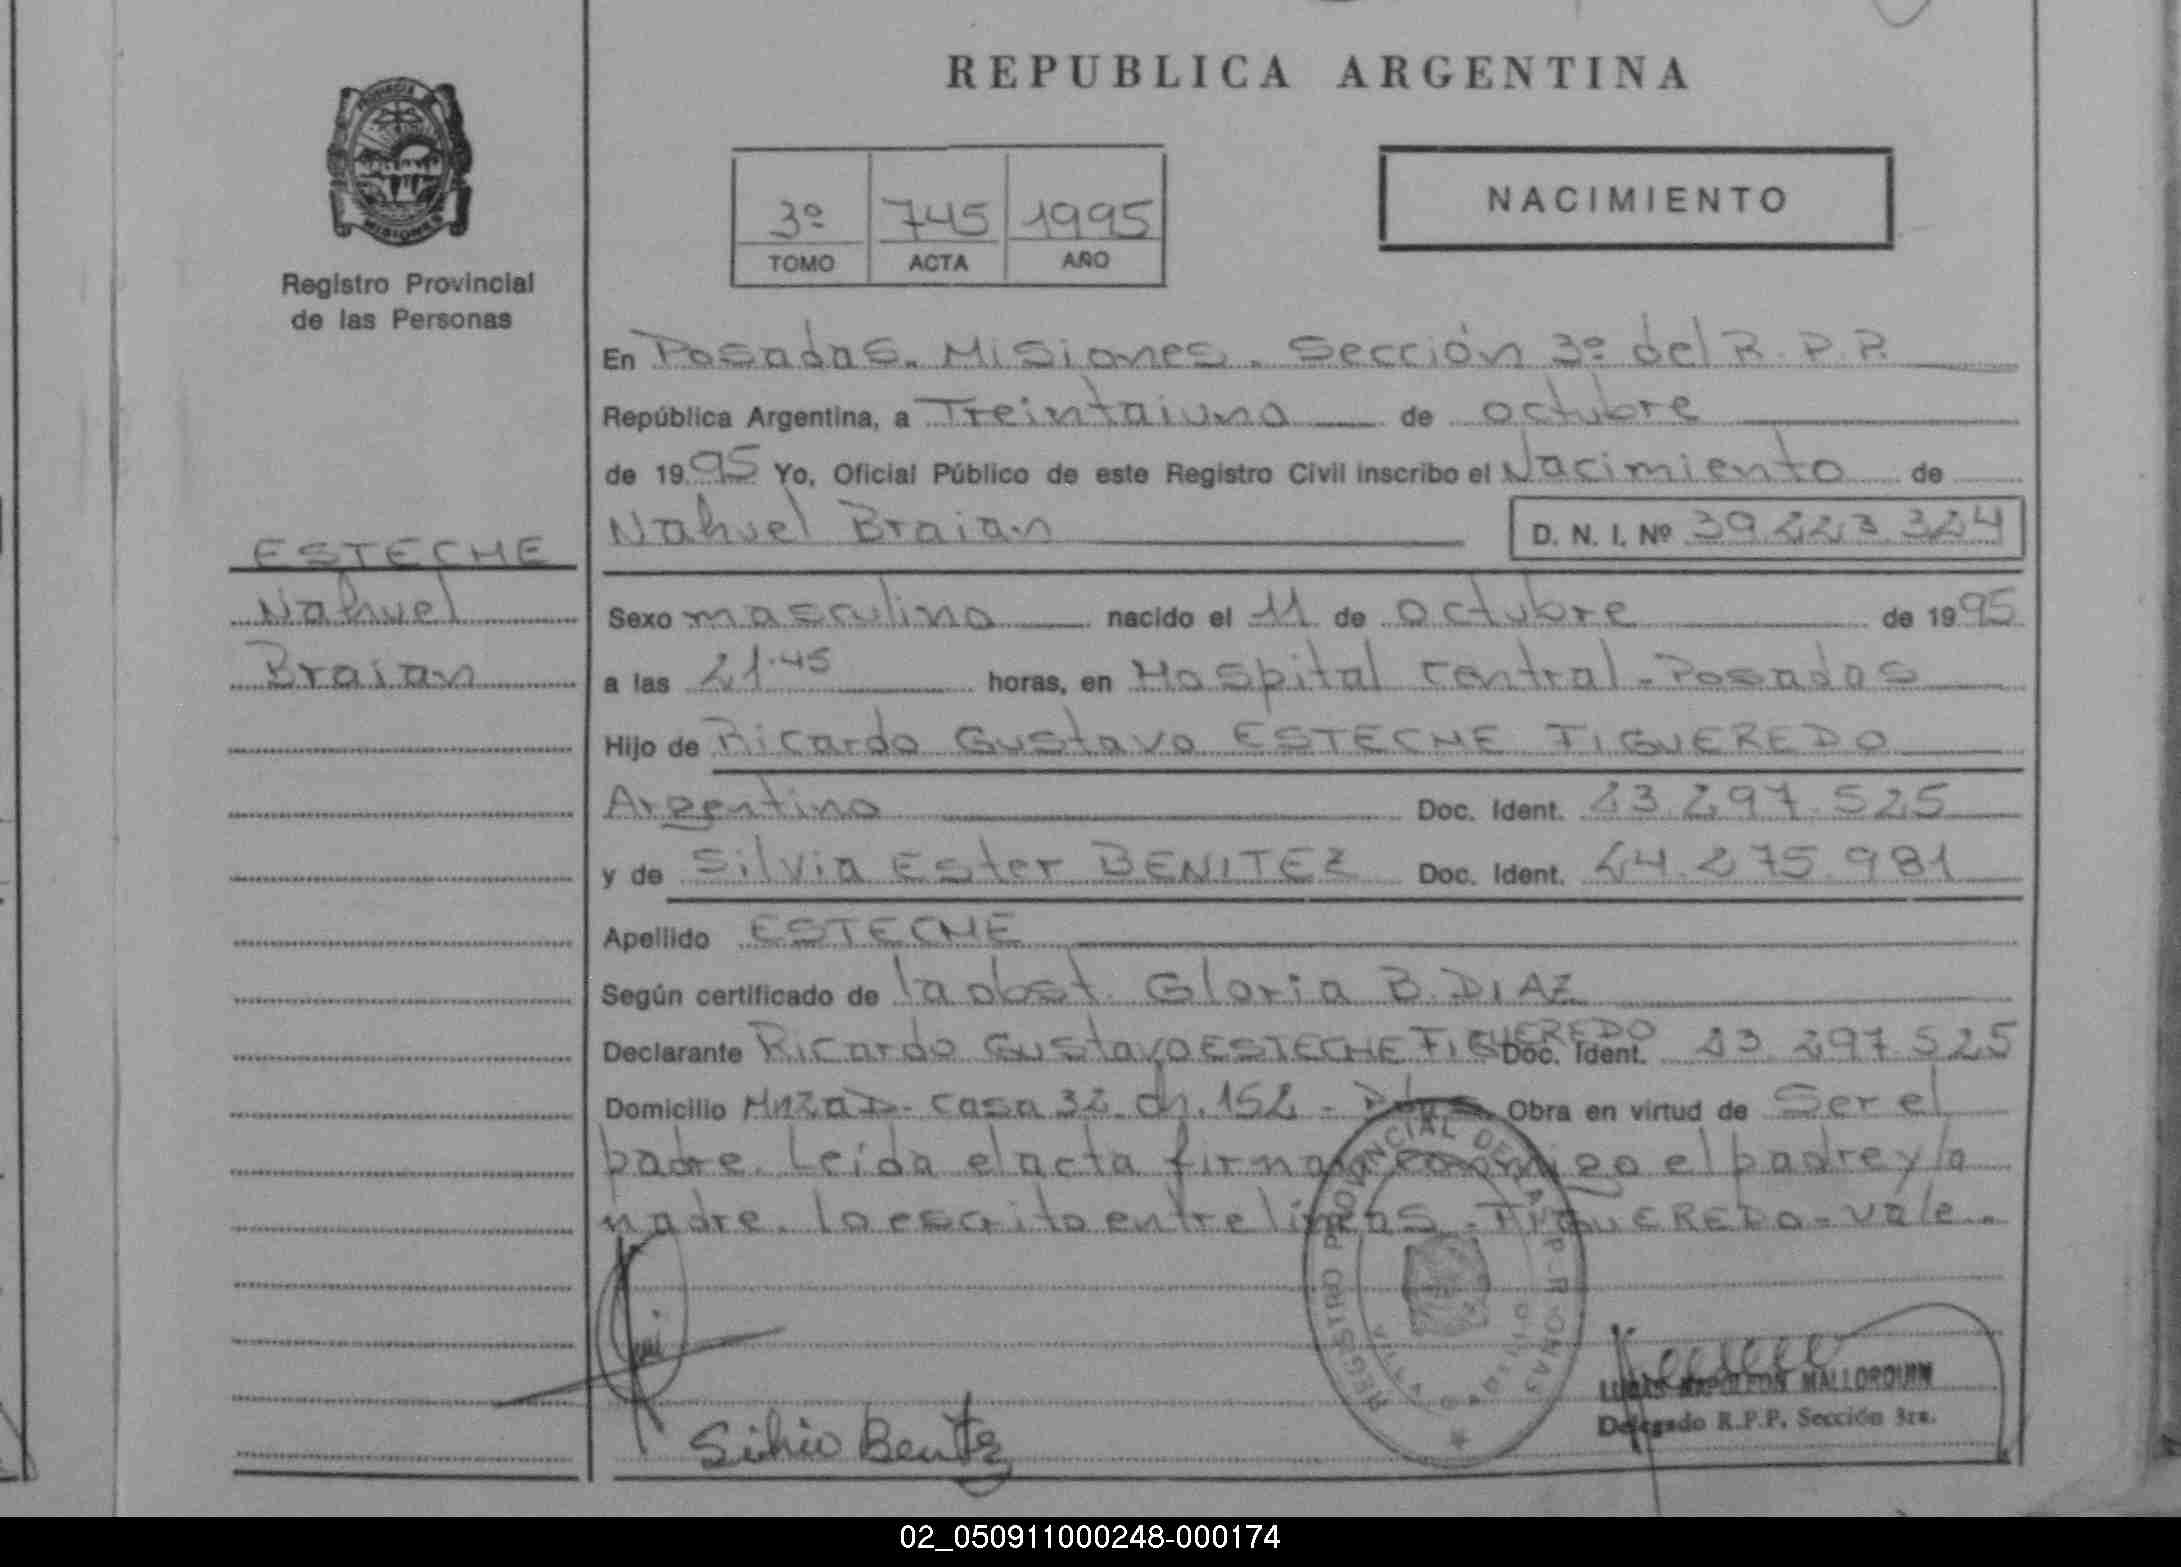 REPUBLICA ARGENTINA
PROVINCIA
MISIONES
Registro Provincial
de las Personas
3º 745 1995
TOMO ACTA AÑO
NACIMIENTO
En Posadas. Misiones. Sección 3º del R.P.P.
República Argentina, a Treintaiuno de octubre
de 1995 Yo, Oficial Público de este Registro Civil inscribo el Nacimiento de
Nahuel Braian D. N. I. Nº 39.223.324
ESTECHE
Nahuel
Braian
Sexo masculino nacido el 11 de octubre de 1995
a las 21.45 horas, en Hospital Central - Posadas
Hijo de Ricardo Gustavo ESTECHE FIGUEREDO
Argentino Doc. Ident. 23.297.525
y de Silvia Ester BENITEZ Doc. Ident. 24.275.981
Apellido ESTECHE
Según certificado de la obst. Gloria B. DIAZ
Declarante Ricardo Gustavo ESTECHE FIGUEREDO Doc. Ident. 23.297.525
Domicilio Mnza D - Casa 32 ch. 152 - Obra en virtud de Ser el
padre. Leída el acta firman conmigo el padre y la
madre. lo escrito entre líneas - FIGUEREDO - vale.
REGISTRO PROVINCIAL DE LAS PERSONAS
POSADAS
Silvia Benitez
LUCAS NAPOLEON MALLORQUIN
Delegado R.P.P. Sección 3ra.
02_050911000248-000174